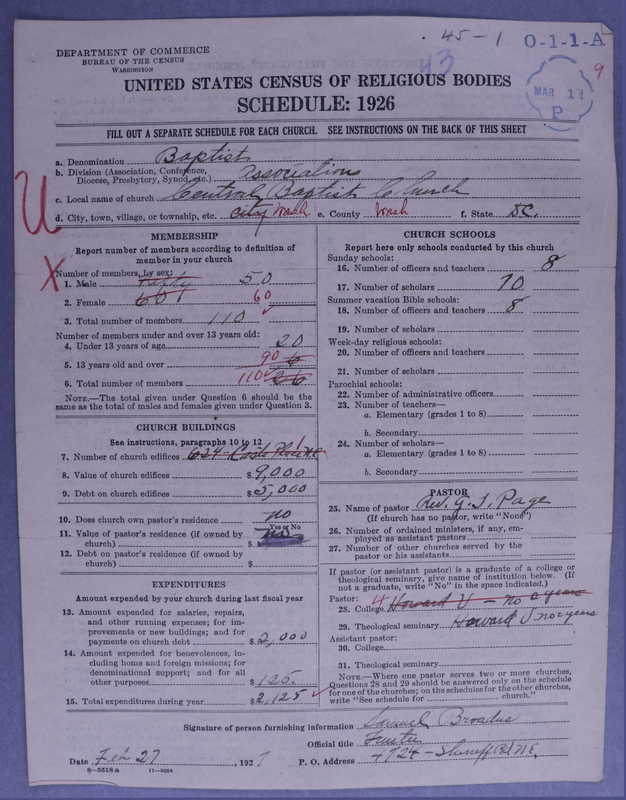 45-1
O-1-1-A
43
9
MAR 1
P
DEPARTMENT OF COMMERCE
BUREAU OF THE CENSUS
WASHINGTON
UNITED STATES CENSUS OF RELIGIOUS BODIES
SCHEDULE: 1926
FILL OUT A SEPARATE SCHEDULE FOR EACH CHURCH. SEE INSTRUCTIONS ON THE BACK OF THIS SHEET
a. Denomination Baptist
b. Division (Association, Conference, Diocese, Presbytery, Synod, etc.) Association
c. Local name of church Central Baptist Church
d. City, town, village, or township, etc. City Wash e. County Wash f. State DC.
U
X
MEMBERSHIP
Report number of members according to definition of
member in your church
Number of members, by sex:
1. Male Fifty 50
2. Female 60
3. Total number of members 110
Number of members under and over 13 years old:
4. Under 13 years of age 20
5. 13 years old and over 90
6. Total number of members 110
NOTE.—The total given under Question 6 should be the
same as the total of males and females given under Question 3.
CHURCH BUILDINGS
See instructions, paragraphs 10 to 12
7. Number of church edifices 624 Place NE 1
8. Value of church edifices $ 9,000
9. Debt on church edifices $ 5,000
10. Does church own pastor's residence no
Yes or No
11. Value of pastor's residence (if owned by
church) $ no
12. Debt on pastor's residence (if owned by
church) $
EXPENDITURES
Amount expended by your church during last fiscal year
13. Amount expended for salaries, repairs,
and other running expenses; for im-
provements or new buildings; and for
payments on church debt $ 2,000
14. Amount expended for benevolences, in-
cluding home and foreign missions; for
denominational support; and for all
other purposes $ 125.
15. Total expenditures during year $ 2,125
CHURCH SCHOOLS
Report here only schools conducted by this church
Sunday schools:
16. Number of officers and teachers 8
17. Number of scholars 70
Summer vacation Bible schools:
18. Number of officers and teachers 8
19. Number of scholars
Week-day religious schools:
20. Number of officers and teachers
21. Number of scholars
Parochial schools:
22. Number of administrative officers
23. Number of teachers—
a. Elementary (grades 1 to 8)
b. Secondary
24. Number of scholars—
a. Elementary (grades 1 to 8)
b. Secondary
PASTOR
25. Name of pastor Rev. G. I. Page
(If church has no pastor, write "None")
26. Number of ordained ministers, if any, em-
ployed as assistant pastors
27. Number of other churches served by the
pastor or his assistants
If pastor (or assistant pastor) is a graduate of a college or
theological seminary, give name of institution below. (If
not a graduate, write "No" in the space indicated.)
Pastor:
28. College Howard U - no years
29. Theological seminary Howard U no years
Assistant pastor:
30. College
31. Theological seminary
NOTE.—Where one pastor serves two or more churches,
Questions 28 and 29 should be answered only on the schedule
for one of the churches; on the schedules for the other churches,
write "See schedule for church."
Signature of person furnishing information Samuel Broadus
Official title
Date Feb 27 1927 P. O. Address 4724 - Sheriff Rd NE.
8-5518a 11-9664